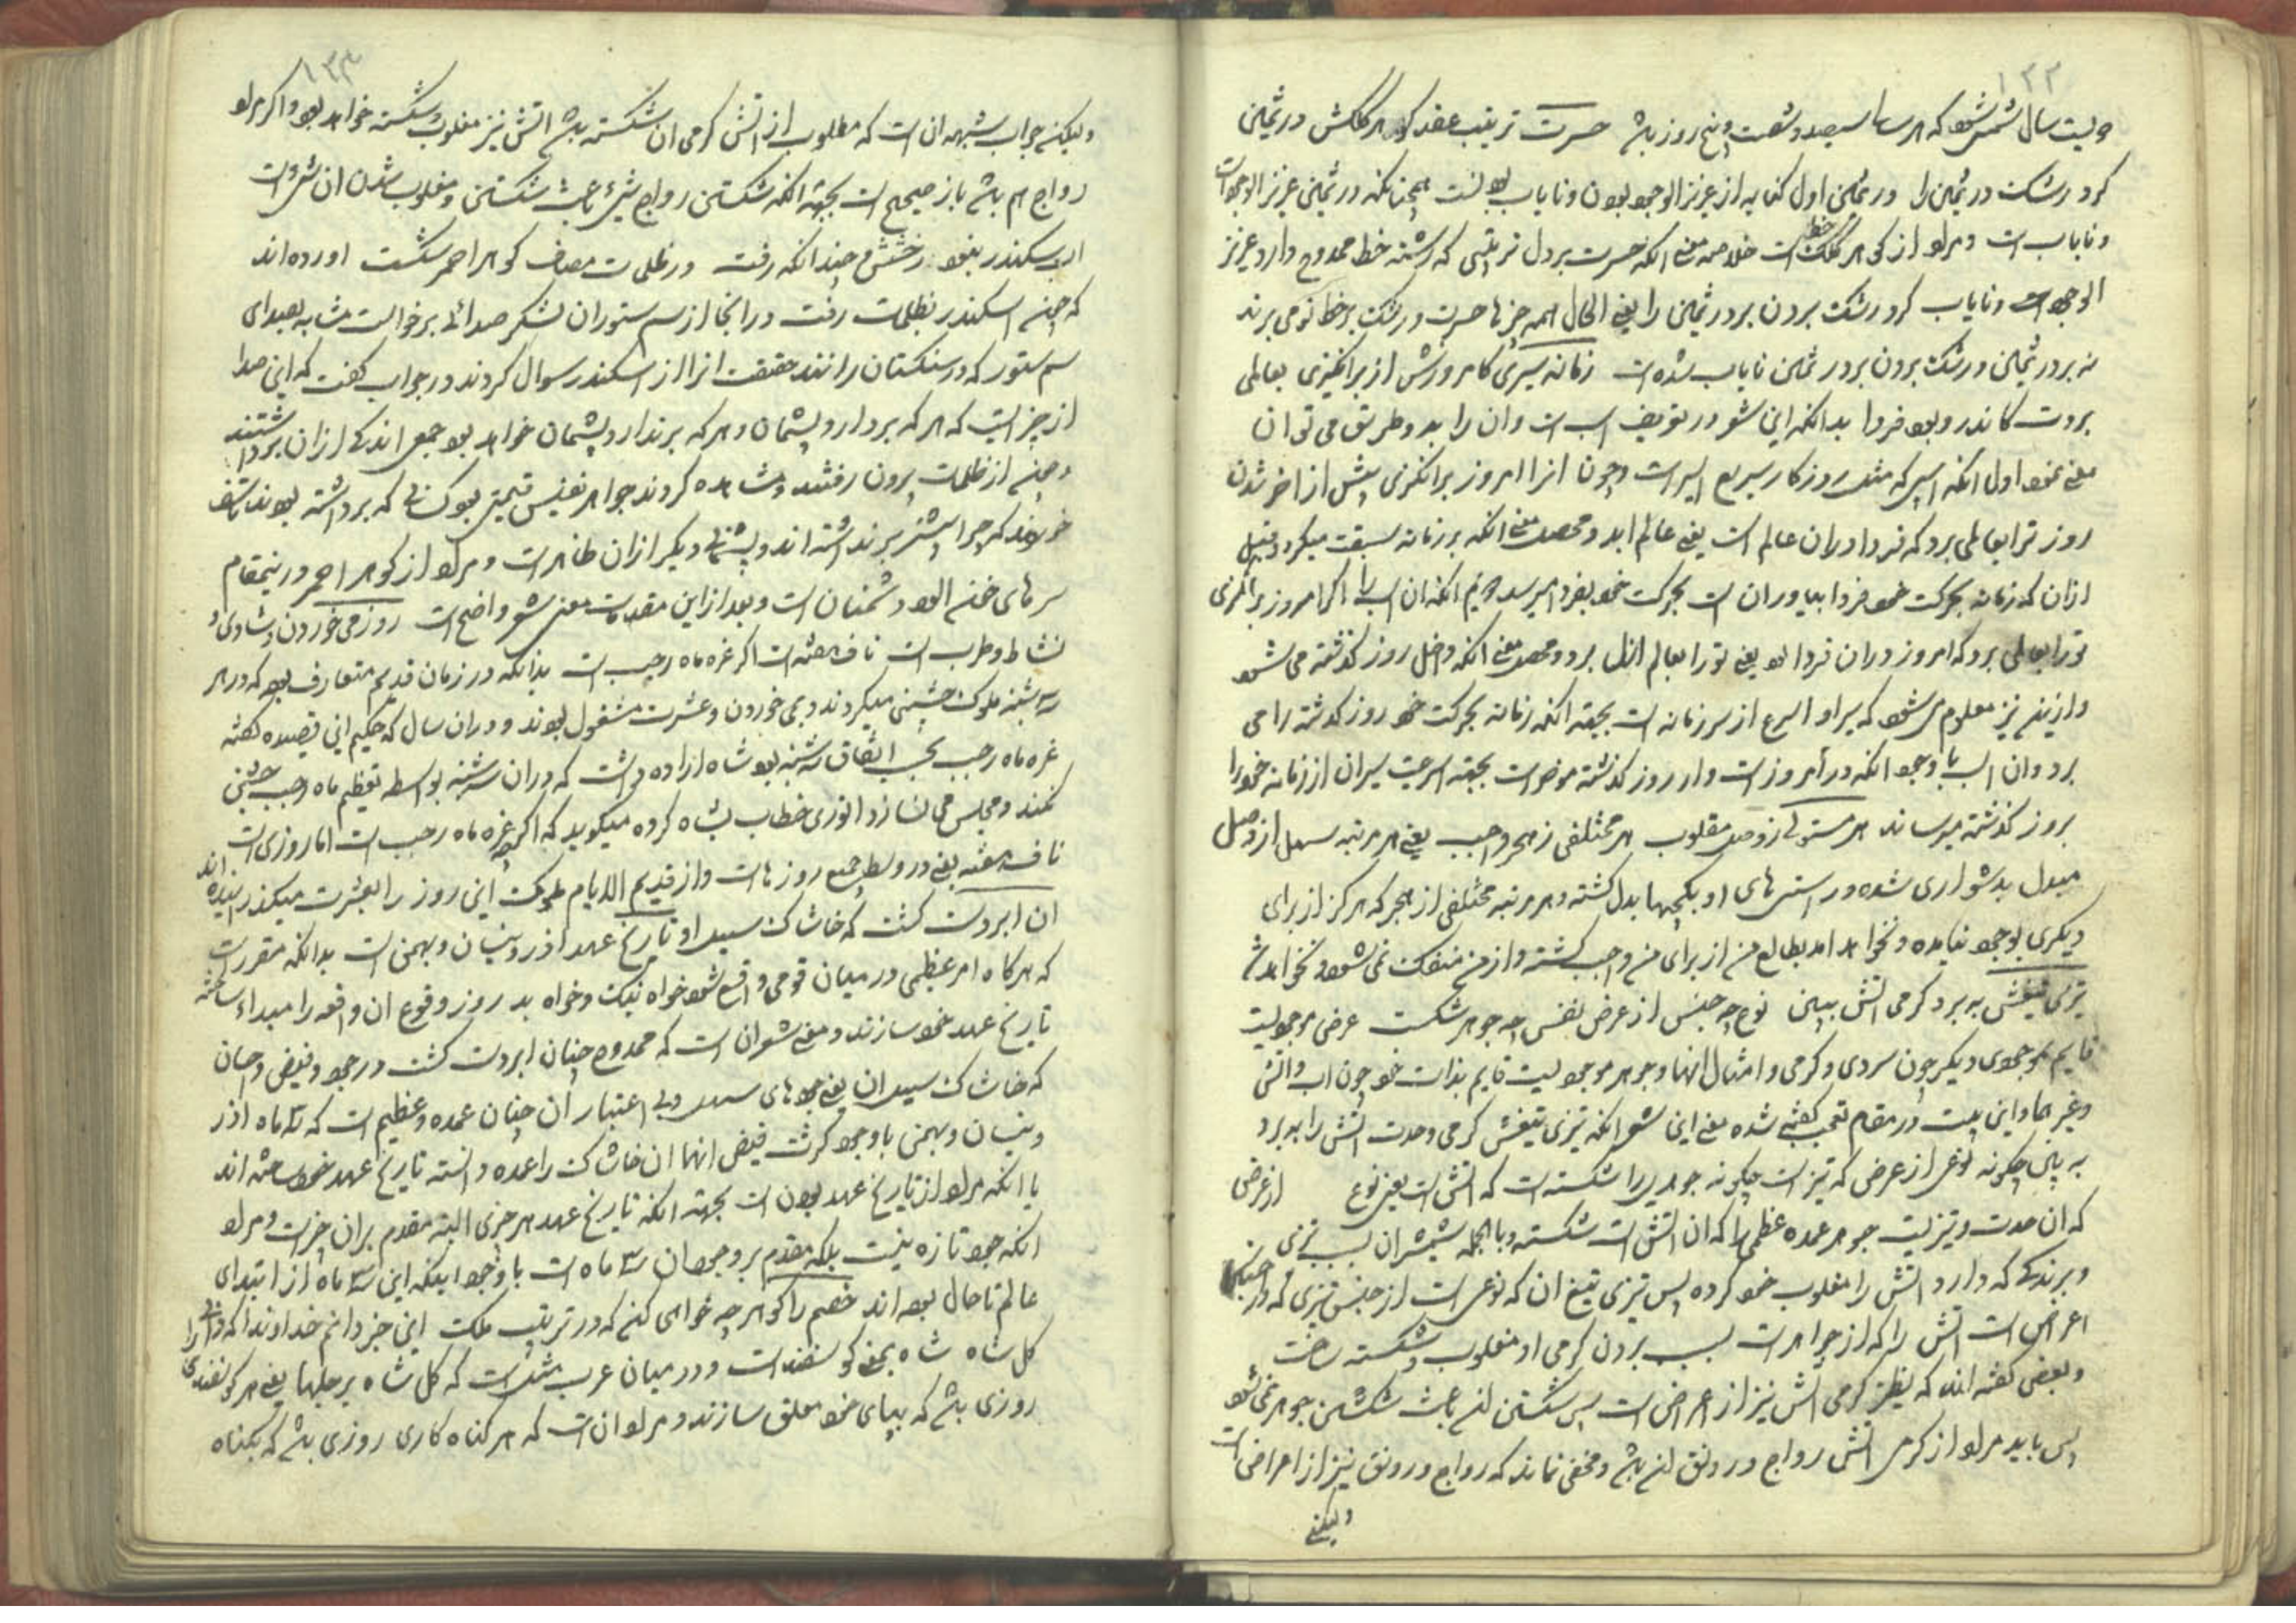 ۱۳۳
دویست سال شمسی شود که هر سال سیصد و شصت و پنج روز باشد حسرت ترتیب عقد گوهر کلکش در ثمین
کرد رشک در ثمین را در ثمین اول کنایه از عزیز الوجود بودن و نایاب بودنست همچنانکه در ثمین عزیز الوجود است
و نایاب است و مراد از گوهر کلک خط است خلاصه معنی آنکه حسرت بردن بر ترتیبی که رشته خط ممدوح دارد عزیز
الوجود است و نایاب کرد رشک بردن بر در ثمین را یعنی الحال همه چیزها حسرت و رشک بر خط او می برند
نه بر در ثمین و رشک بردن بر در ثمین نایاب شده است زمانه سیری کامروزش ار برانگیزی بعالمی
بردت کاندرو بود فردا بدانکه این شعر در تعریف اسب است و آن را بدو طریق می توان
معنی نمود اول آنکه اسپی که مثل روزگار سریع السیر است و چون آنرا امروز برانگیزی پیش از آخر شدن
روز ترا بعالمی برد که فردا در آن عالم است یعنی عالم ابد و محصل معنی آنکه بر زمانه سبقت میگیرد و قبل
ازان که زمانه بحرکت خود فردا بیاورد آن است بحرکت خود بفردا میرسد دویم آنکه آن اسب را اگر امروز برانگیزی
تو را بعالمی برد که امروز در آن فردا بود یعنی تو را بعالم ازل برد و محصل معنی آنکه داخل روز گذشته می شود
و ازینجا نیز معلوم می شود که سیر او اسرع از سیر زمانه است بجهة آنکه زمانه بحرکت خود روز گذشته را می
برد و آن اسب با وجود آنکه در امروز است و از روز گذشته موخر است بجهة سرعت سیر آن از زمانه خود را
بروز گذشته میرساند هر مستوی ز وصل مقلوب هر مختلفی ز هجر واجب یعنی هر مرتبه سهل از وصل
مبدل بدشواری شده و راستی های او بکجیها بدل گشته و هر مرتبه مختلفی از هجر که هرگز از برای
دیگری بوجود نیامده و نخواهد آمد بطالع من از برای من واجب گشته و از من منفک نمی شود و نخواهد شد
تیزی تیغش به برد گرمی آتش ببین نوع چه جنس از عرض نفس چه جوهر شکست عرض موجودیست
قایم بموجودی دیگر چون سردی و گرمی و امثال آنها و جوهر موجودیست قایم بذات خود چون آب و آتش
و غیرها و این بیت در مقام تعجب گفته شده معنی این شعر آنکه تیزی تیغش گرمی و حدت آتش را به برد
به بین چگونه نوعی از عرض که تیزیست چگونه جوهری را شکسته است که آتش است یعنی نوع از عرض
که آن حدت و تیزیست جوهر عمده عظمی را که آن آتش است شکسته و بالجمله شمشیر آن بسبب تیزی
و برندگی که دارد آتش را مغلوب خود کرده پس تیزی تیغ آن که نوعی است از جنس تیزی که
اعراض است آتش را که از جواهر است بسبب بردن گرمی او مغلوب و شکسته ساخت
و بعضی گفته اند که بنظر گرمی آتش نیز از عرض است پس شکستن آن باعث شکستن جوهر نمی شود
پس باید مراد از گرمی آتش رواج و رونق آن باشد و مخفی نماند که رواج و رونق نیز از اعراض است
ولیکن
۱۳۴
ولیکن جواب شبهه آن است که مطلوب از آتش گرمی آن شکسته باشد آتش نیز مغلوب و شکسته خواهد بود و اگر مراد
رواج هم باشد باز صحیح است بجهة آنکه شکستن رواج شیء باعث شکستن و مغلوب شدن آن شیء است
از سکندر رفت در ظلمت مصاف گوهر احمر شکست آورده اند
که چون اسکندر بظلمات رفت در آنجا از سم ستوران لشکر صدائی برخواست مشابه بصدای
سم ستور که در سنگستان رانند حقیقت آنرا از اسکندر سوال کردند در جواب گفت که این صدا
از چیزیست که هر که بردارد پشیمان و هر که برندارد پشیمان خواهد بود جمعی اندکی ازان برداشتند
و چون از ظلمات بیرون رفتند و مشاهده کردند جواهر نفیس قیمتی بود کسانی که برداشته بودند تاسف
خوردند که چرا بیشتر برنداشته اند و پشیمانی دیگران ظاهر است و مراد از گوهر احمر درینمقام
سرهای خون آلود دشمنان است و بعد از این مقدمات معنی شعر واضح است روز می خوردن و شادی و
نشاط و طرب است ناف هفته است اگر غره ماه رجب است بدانکه در زمان قدیم متعارف بود که در هر
سه شنبه ملوک جشنی میکردند و بمی خوردن و عشرت مشغول بودند و در آن سال که حکیم این قصیده گفته
غره ماه رجب بحسب اتفاق سه شنبه بود شاه اراده داشت که در آن سه شنبه بواسطه تعظیم ماه رجب جشن
نکند و مجلس می نسازد انوری خطاب بشاه کرده میگوید که اگر چه غره ماه رجب است اما روزیست
ناف هفته یعنی در وسط جمیع روزهاست و از قدیم الایام ملوک این روز را بعشرت میگذرانیده اند
آن ابر دست گشت که خاشاک سیل او تاریخ عهد آذر و نیسان و بهمن است بدانکه مقرر است
که هرگاه امر عظیمی در میان قومی واقع شود خواه نیک و خواه بد روز وقوع آن واقعه را مبداء ساخته
تاریخ عهد خود سازند و معنی شعر آن است که ممدوح چنان ابر دست گشت در جود و فیض و احسان
که خاشاک سیل آن یعنی جودهای سهل و بی اعتبار آن چنان عمده و عظیم است که سه ماه آذر
و نیسان و بهمن با وجود کثرت فیض آنها آن خاشاک را عمده دانسته تاریخ عهد خود ساخته اند
یا آنکه مراد از تاریخ عهد بودن است بجهة آنکه تاریخ عهد هر چیزی البته مقدم بران چیز است و مراد
آنکه جود تازه نیست بلکه مقدم بر وجود آن سه ماه است با وجود اینکه این سه ماه از ابتدای
عالم تا حال بوده اند خصم را گو هر چه خواهی کن که در ترتیب ملک این خبر دانم خداوندا که دانی را
کل شاه شاه بمعنی گوسفند است و در میان عرب مثل است که کل شاه برجلها یعنی هر گوسفندی
روزی باشد که بپای خود معلق سازند و مراد آن است که هر گناه کاری روزی باشد که بگناه